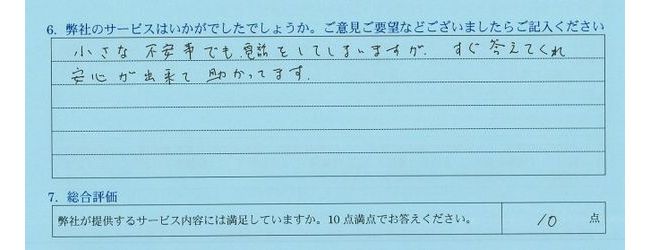 6. 弊社のサービスはいかがでしたでしょうか。ご意見ご要望などございましたらご記入ください
小さな不安事でも電話をしてしまいますが、すぐ答えてくれ
安心が出来て助かってます。
7. 総合評価
弊社が提供するサービス内容には満足していますか。10点満点でお答えください。 10 点